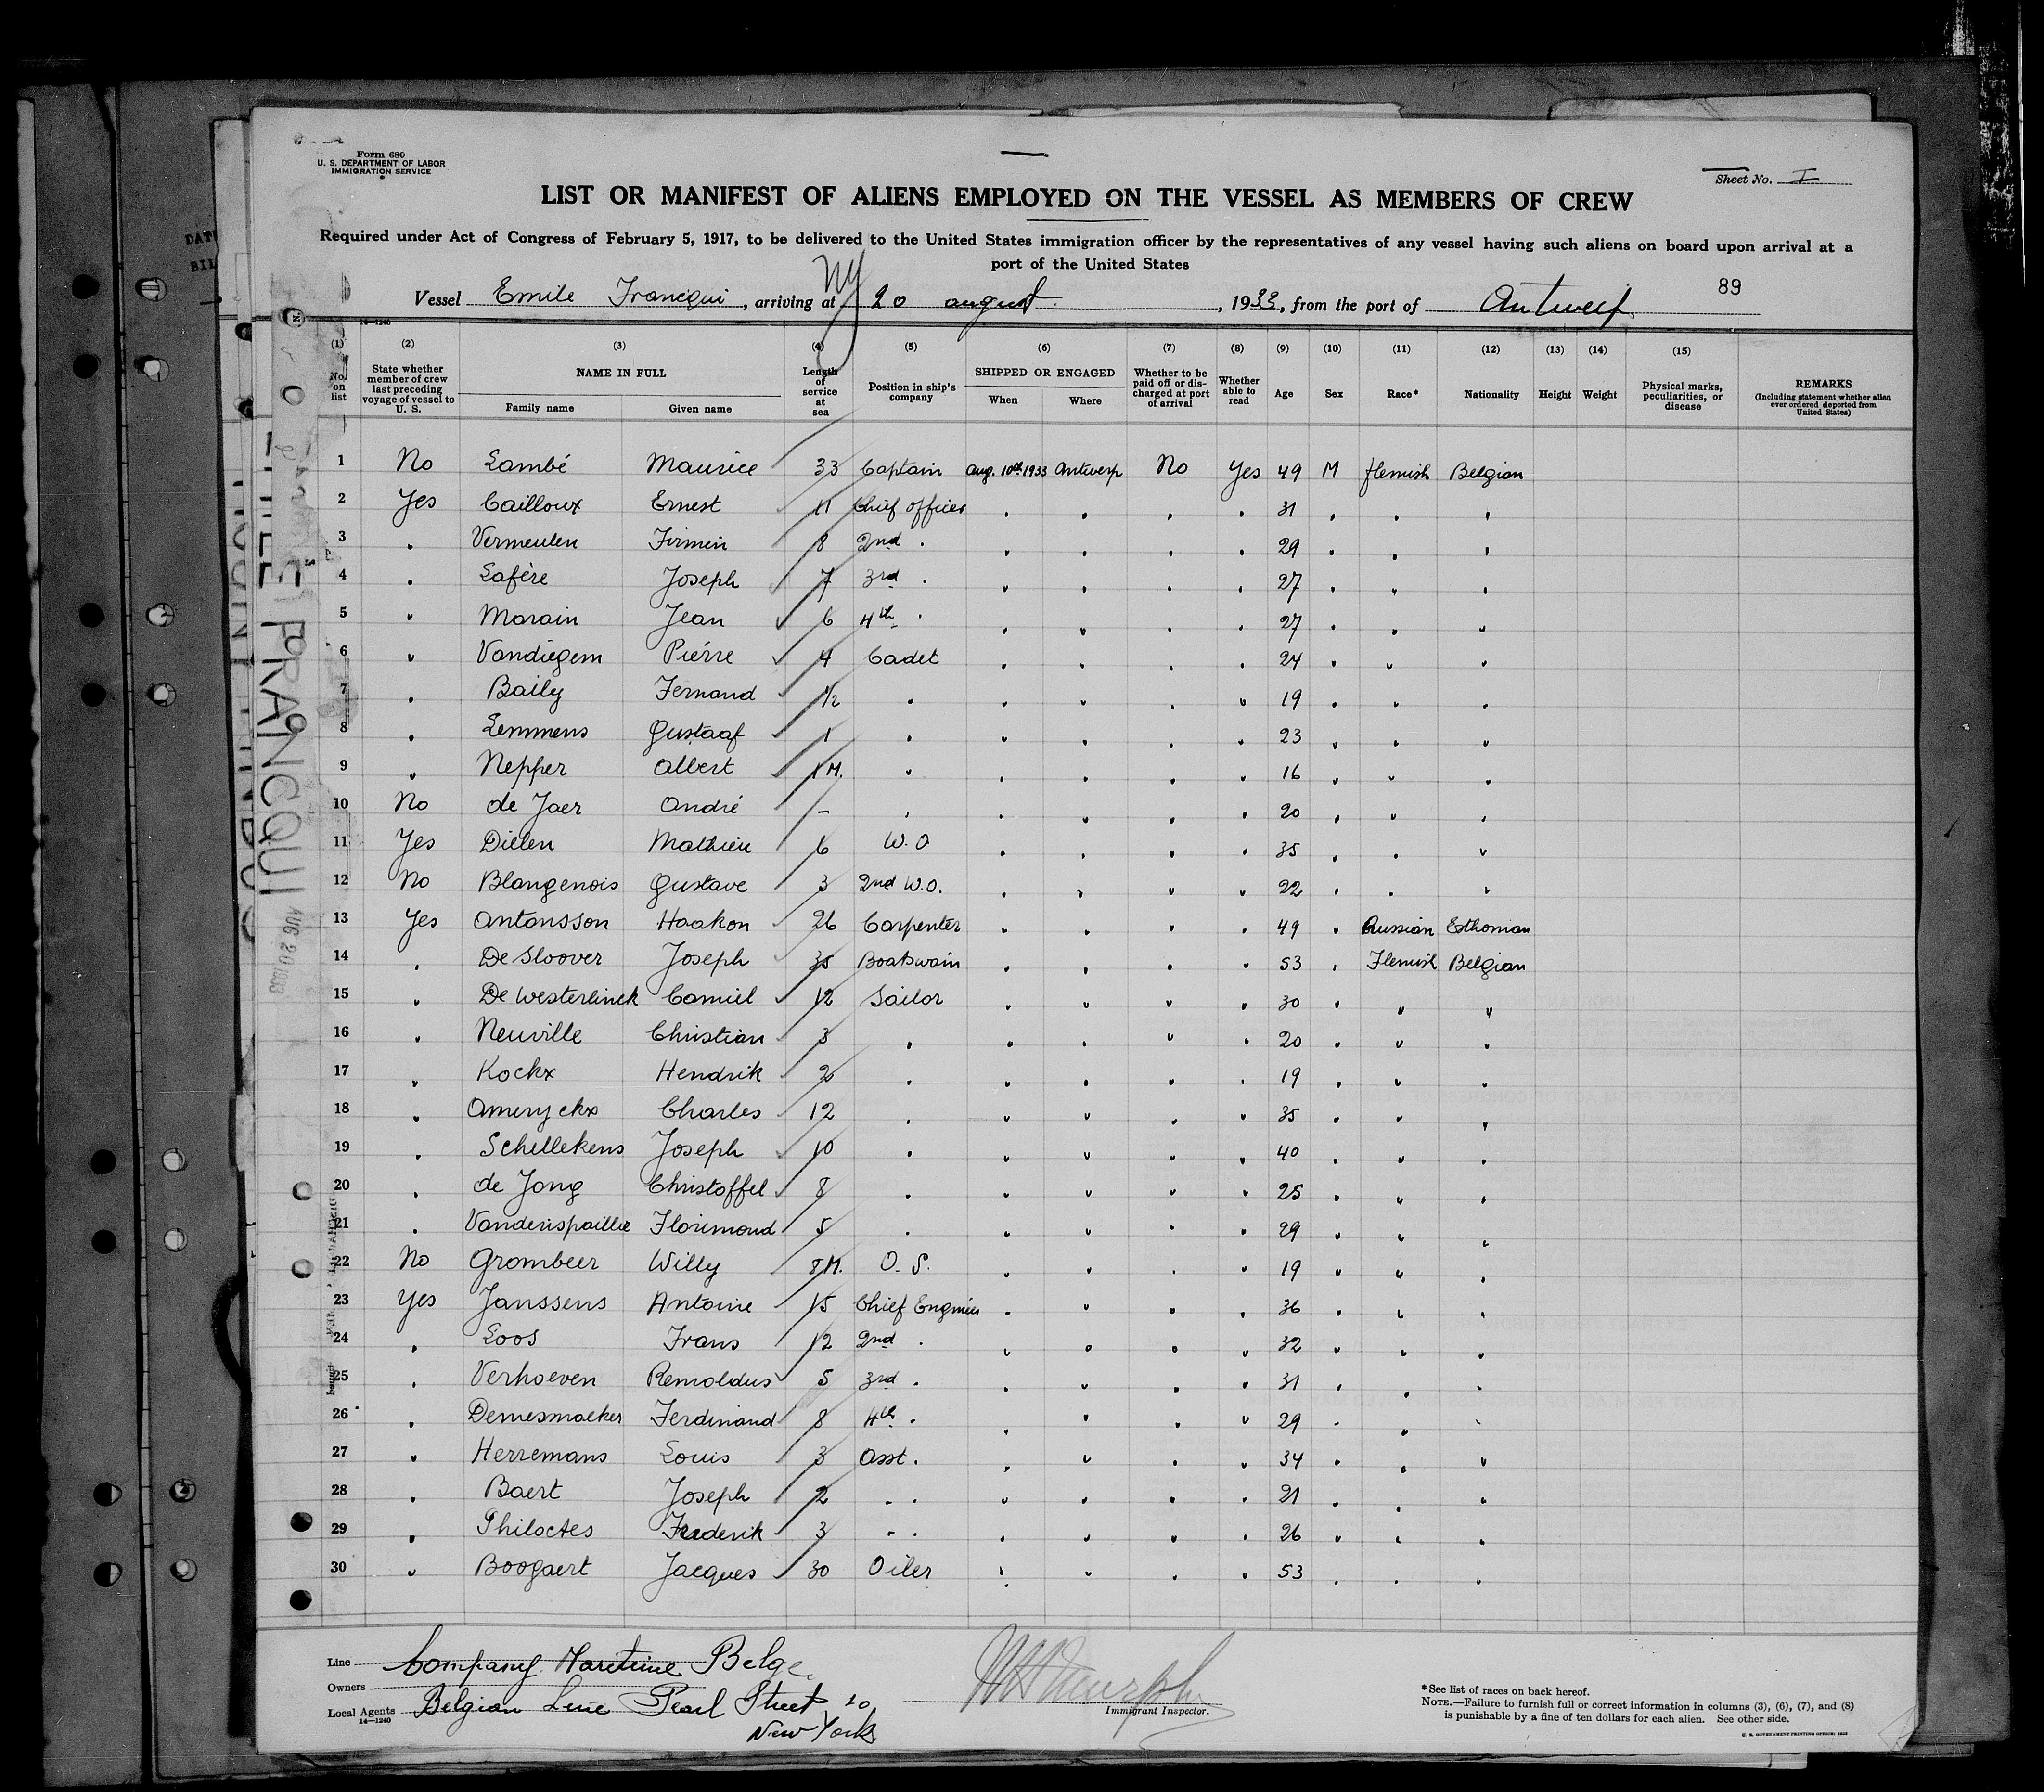 Form 680
U. S. DEPARTMENT OF LABOR
IMMIGRATION SERVICE
Sheet No. I
LIST OR MANIFEST OF ALIENS EMPLOYED ON THE VESSEL AS MEMBERS OF CREW
Required under Act of Congress of February 5, 1917, to be delivered to the United States immigration officer by the representatives of any vessel having such aliens on board upon arrival at a
port of the United States
89
Vessel Emile Francqui, arriving at NY 20 august, 1933, from the port of Antwerp
14—1240
(1) (2) (3) (4) (5) (6) (7) (8) (9) (10) (11) (12) (13) (14) (15)
No. on list State whether member of crew last preceding voyage of vessel to U. S. NAME IN FULL Family name Given name Length of service at sea Position in ship's company SHIPPED OR ENGAGED When Where Whether to be paid off or discharged at port of arrival Whether able to read Age Sex Race* Nationality Height Weight Physical marks, peculiarities, or disease REMARKS (Including statement whether alien ever ordered deported from United States)
1 No Lambé Maurice 33 Captain Aug. 10th 1933 Antwerp No Yes 49 M Flemish Belgian
2 Yes Cailloux Ernest 11 Chief officer " " " " 31 " " "
3 " Vermeulen Firmin 8 2nd " " " " " 29 " " "
4 " Lafère Joseph 7 3rd " " " " " 27 " " "
5 " Marain Jean 6 4th " " " " " 27 " " "
6 " Vandiegem Piérre 4 Cadet " " " " 24 " " "
7 " Baily Fernand 1/2 " " " " " 19 " " "
8 " Lemmens Gustaaf 1 " " " " " 23 " " "
9 " Nepper Albert 1 M. " " " " " 16 " " "
10 No de Jaer André - " " " " " 20 " " "
11 Yes Dillen Mathieu 6 W.O " " " " 35 " " "
12 No Blangenois Gustave 3 2nd W.O. " " " " 22 " " "
13 Yes Antonsson Haakon 26 Carpenter " " " " 49 " Russian Esthonian
14 " De Sloover Joseph 35 Boatswain " " " " 53 " Flemish Belgian
15 " De Westerlinck Camiel 12 Sailor " " " " 30 " " "
16 " Neuville Christian 3 " " " " " 20 " " "
17 " Kockx Hendrik 2 " " " " " 19 " " "
18 " Ameryckx Charles 12 " " " " " 35 " " "
19 " Schellekens Joseph 10 " " " " " 40 " " "
20 " de Jong Christoffel 8 " " " " " 25 " " "
21 " Vanderispaillie Florimond 5 " " " " " 29 " " "
22 No Grombeer Willy 8 M. O. S. " " " " 19 " " "
23 Yes Janssens Antoine 15 Chief Engineer " " " " 36 " " "
24 " Loos Frans 12 2nd " " " " " 32 " " "
25 " Verhoeven Remoldus 5 3rd " " " " " 31 " " "
26 " Demesmaeker Ferdinand 8 4th " " " " " 29 " " "
27 " Herremans Louis 3 Asst. " " " " 34 " " "
28 " Baert Joseph 2 " " " " " " 21 " " "
29 " Philoctes Frederik 3 " " " " " " 26 " " "
30 " Boogaert Jacques 30 Oiler " " " " 53 " " "
EMILE FRANCQUI
AUG 20 1933
Line Company Maritime Belge
Owners
Local Agents Belgian Line Pearl Street 10
New York
14—1240
Immigrant Inspector.
*See list of races on back hereof.
NOTE.—Failure to furnish full or correct information in columns (3), (6), (7), and (8)
is punishable by a fine of ten dollars for each alien. See other side.